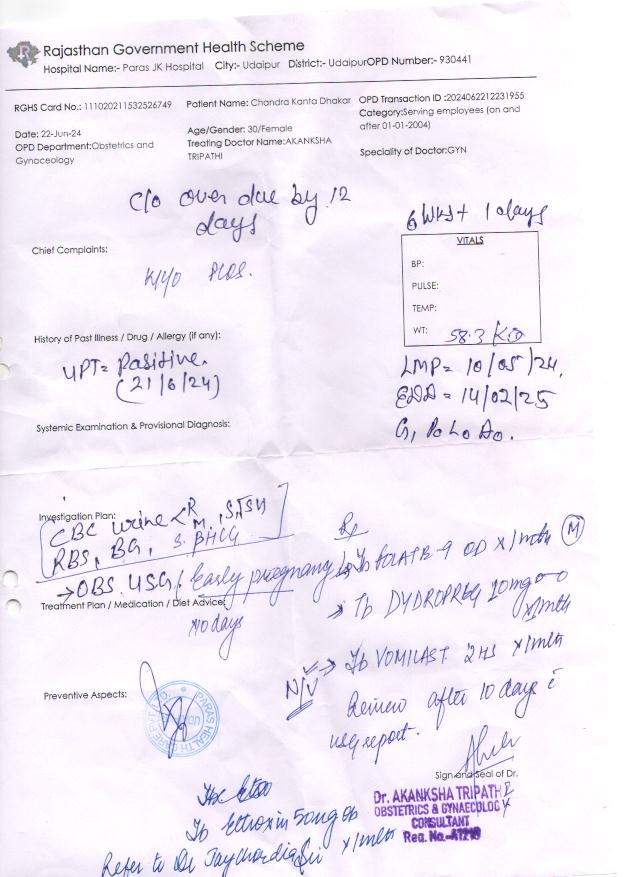 Rajasthan Government Health Scheme
Hospital Name:- Paras JK Hospital City:- Udaipur District:- UdaipurOPD Number:- 930441
RGHS Card No.: 111020211532526749 Patient Name: Chandra Kanta Dhakar OPD Transaction ID :2024062212231955
Category:Serving employees (on and after 01-01-2004)
Date: 22-Jun-24 Age/Gender: 30/Female
OPD Department:Obstetrics and Gynaceology
Treating Doctor Name:AKANKSHA TRIPATHI
Speciality of Doctor:GYN
C/o over due by 12
days
6 Wks + 1 days
Chief Complaints:
K/4/0 PCOS.
VITALS
BP:
PULSE:
TEMP:
WT: 58.3 KG
History of Past Illness / Drug / Allergy (if any):
UPT= Positive.
(21/6/24)
LMP= 10/05/24,
EDD = 14/02/25
G1 P0 L0 A0.
Systemic Examination & Provisional Diagnosis:
Investigation Plan:
CBC urine < R M, S.TSH
RBS, BG, S. BHCG
→ OBS. USG (Early pregnancy)
Rx
Tb FOLATE-9 OD x/mth (M)
Treatment Plan / Medication / Diet Advice:
x10 days
→ Tb DYDROPREG 10mg o-o
x/mth
→ Tb VOMILAST 2 HS x/mth
N/V
Review after 10 days c
usg report.
Preventive Aspects:
PARAS HEALTHCARE PVT. LTD.
Sign and Seal of Dr.
Dr. AKANKSHA TRIPATHI
OBSTETRICS & GYNAECOLOGY
CONSULTANT
Reg. No.-
Tb Eltroxin 50mg ob
x/mth
Refer to Dr Jay Chordia Sir